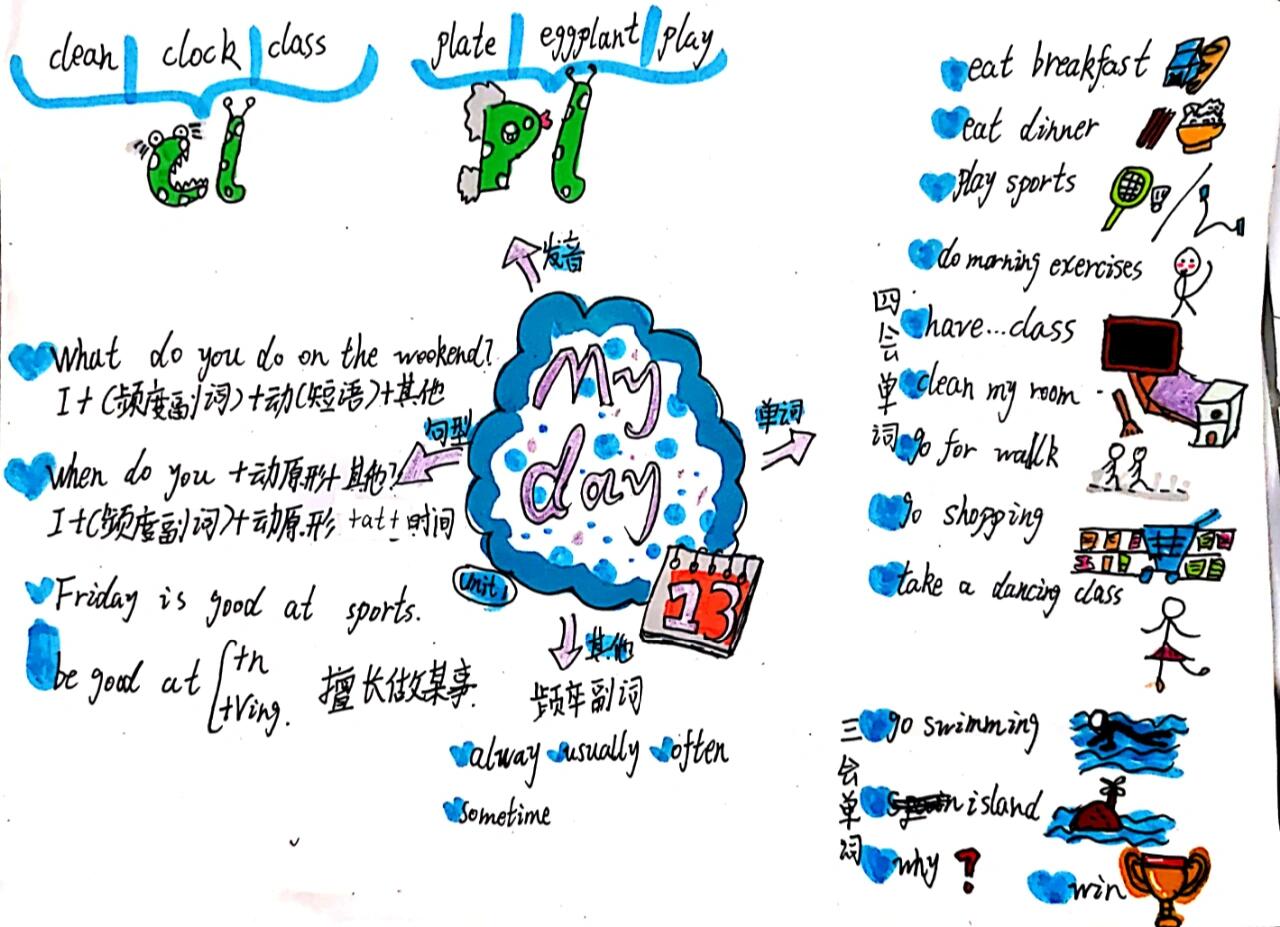 clean clock class
cl
plate eggplant play
Pl
发音
My
day
Unit 1
13
句型
What do you do on the weekend?
I+(频度副词)+动(短语)+其他
When do you +动原形+其他?
I+(频度副词)+动原形 +at+时间
Friday is good at sports.
be good at +n
+Ving.
擅长做某事.
其他
频率副词
alway usually often
sometime
单词
四会单词
eat breakfast
eat dinner
play sports
do morning exercises
have...class
clean my room
go for wallk
go shopping
take a dancing class
三会单词
go swimming
island
why ?
win